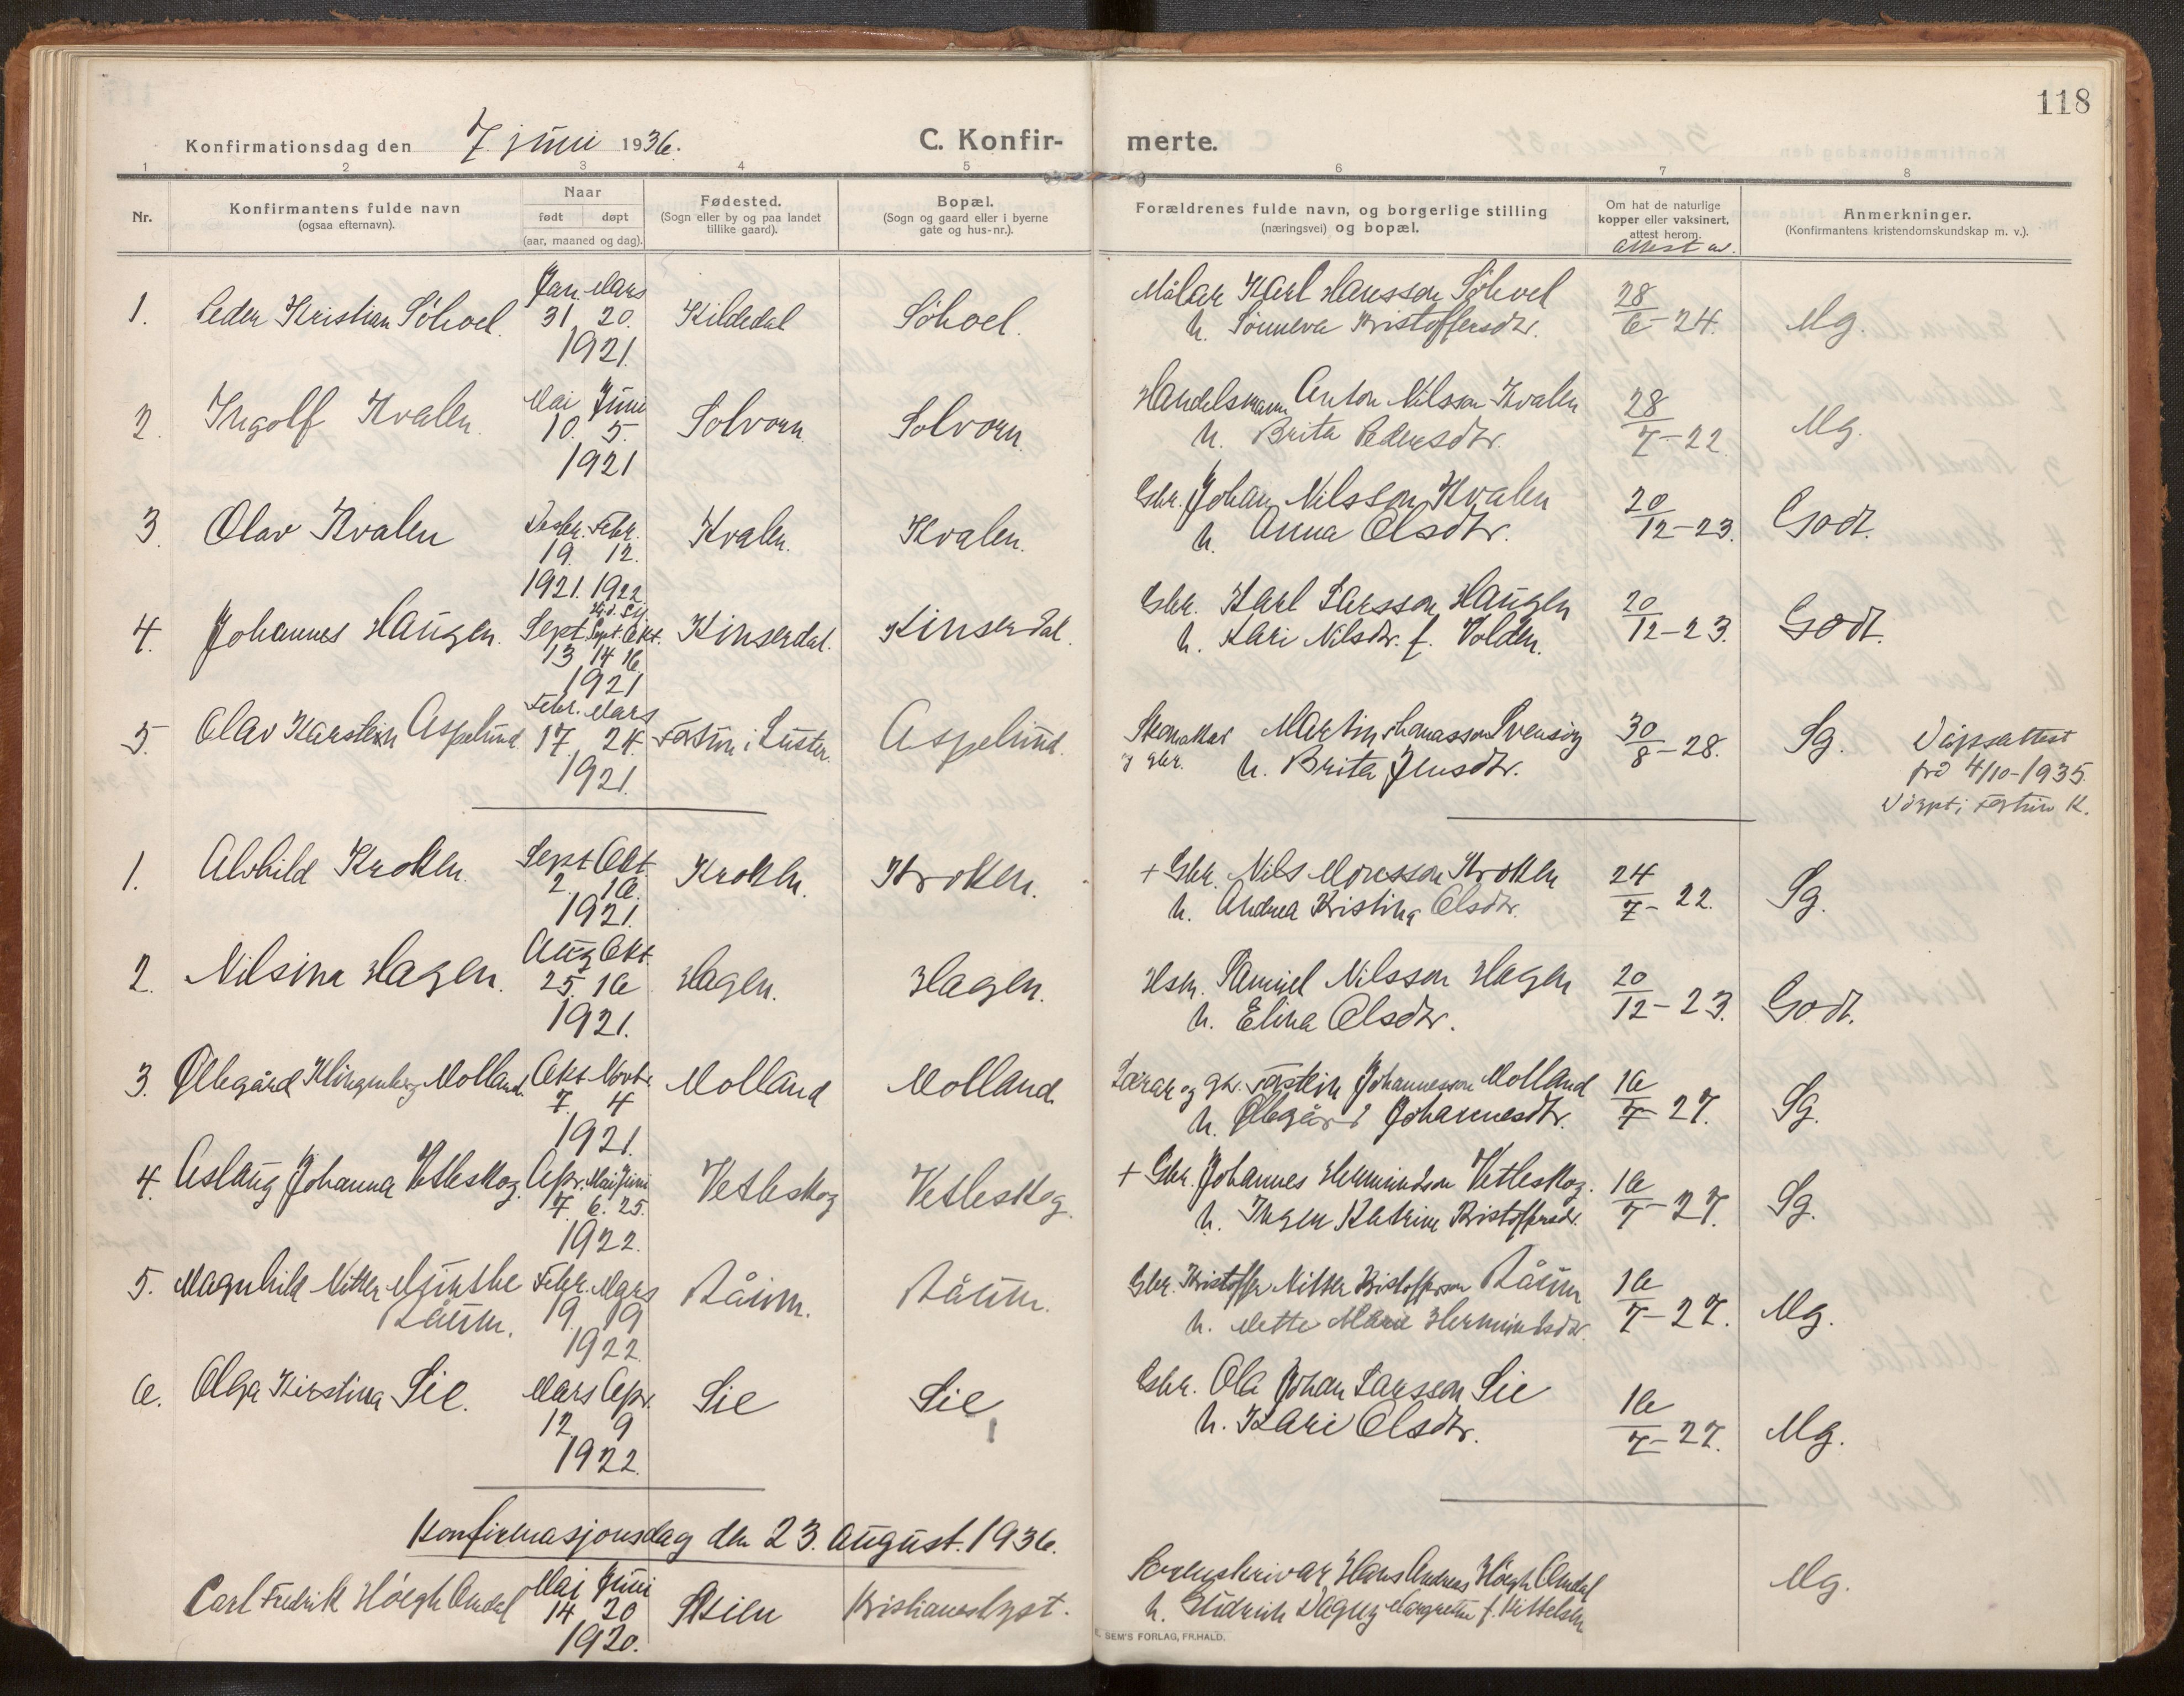 118
Konfirmationsdag den 7. juni 1936.
C. Konfir-
merte.
1 2 3 4 5 6 7 8
Nr.
Konfirmantens fulde navn
(ogsaa efternavn).
Naar
født døpt
(aar, maaned og dag).
Fødested.
(Sogn eller by og paa landet
tillike gaard).
Bopæl.
(Sogn og gaard eller i byerne
gate og hus-nr.).
Forældrenes fulde navn, og borgerlige stilling
(næringsvei) og bopæl.
Om hat de naturlige
kopper eller vaksinert,
attest herom.
attest av.
Anmerkninger.
(Konfirmantens kristendomskundskap m. v.).
Jan. Mars
1. Peder Kristian Søhoel. 31. 20. Kildedal Søhoel.
1921.
Målar Karl Hansson Søhoel
h. Sønneva Kristoffersdtr.
28/6-24. Mg.
Mai Juni
2. Ingolf Kvalen. 10. 5. Solvorn Solvorn.
1921
Handelsmann Anton Nilsson Kvalen
h. Brita Pedersdtr.
28/7-22 Mg.
3. Olav Kvalen Desbr. Febr. Kvalen. Kvalen.
19. 12.
1921. 1922
Gbr. Johan Nilsson Kvalen
h. Anna Olsdtr.
20/12-23. Godt.
4. Johannes Haugen. Sept. Sept. Okt. Kinserdal. Kinserdal.
13 14 16
1921
Gbr. Karl Larsson Haugen
h. Kari Nilsdtr. f. Volden.
20/12-23. Godt.
Febr. Mars
5. Olav Karstein Aspelund 17. 24. Fortun i Luster. Aspelund.
1921.
Skomakar Martin Thomasson Svensøy
og gbr. h. Brita Jensdtr.
30/8-28. Sg. Dåpsattest
frå 4/10-1935.
Døypt i Fortun K.
1. Alvhild Kroken. Sept. Okt. Kroken. Kroken.
2. 16.
1921.
+ Gbr. Nils Monsson Kroken
h. Andrea Kristina Olsdtr.
24/7-22. Sg.
Aug. Okt.
2. Nilsina Hagen. 25. 16 Hagen. Hagen.
1921.
Hsm. Samuel Nilsson Hagen
h. Elina Olsdtr.
20/12-23. Godt.
3. Øllegård Klingenberg Molland. Okt. Novbr. Molland Molland.
7. 4
1921.
Lærar og gbr. Torstein Johannesson Molland
h. Øllegård Johannesdtr.
16/7-27. Sg.
4. Aslaug Johanna Vetleskog. Apr. Mai Juni Vetleskog Vetleskog.
7. 6. 25.
1922.
+ Gbr. Johannes Hermundson Vetleskog.
h. Inger Katrine Kristoffersdtr.
16/7-27. Sg.
5. Magnhild Nitter Munthe Febr. Mars Råum. Råum.
Råum. 19. 19
1922.
Gbr. Kristoffer Nitter Kristofferson Råum
h. Mette Marie Hermundsdtr.
16/7-27. Mg.
6. Olga Kirstina Sie. Mars Apr. Sie Sie
12. 9
1922.
Gbr. Ola Johan Larsson Sie
h. Kari Olsdtr.
16/7-27. Mg.
Konfirmasjonsdag den 23. august. 1936.
Mai Juni
Carl Fredrik Høegh Omdal 14. 20 Skien Kristianslyst.
1920.
Sorenskrivar Hans Andreas Høegh Omdal
h. Gudrun Dagny Margrethe f. Kittelsen
Mg.
SEM'S FORLAG, FR.HALD.